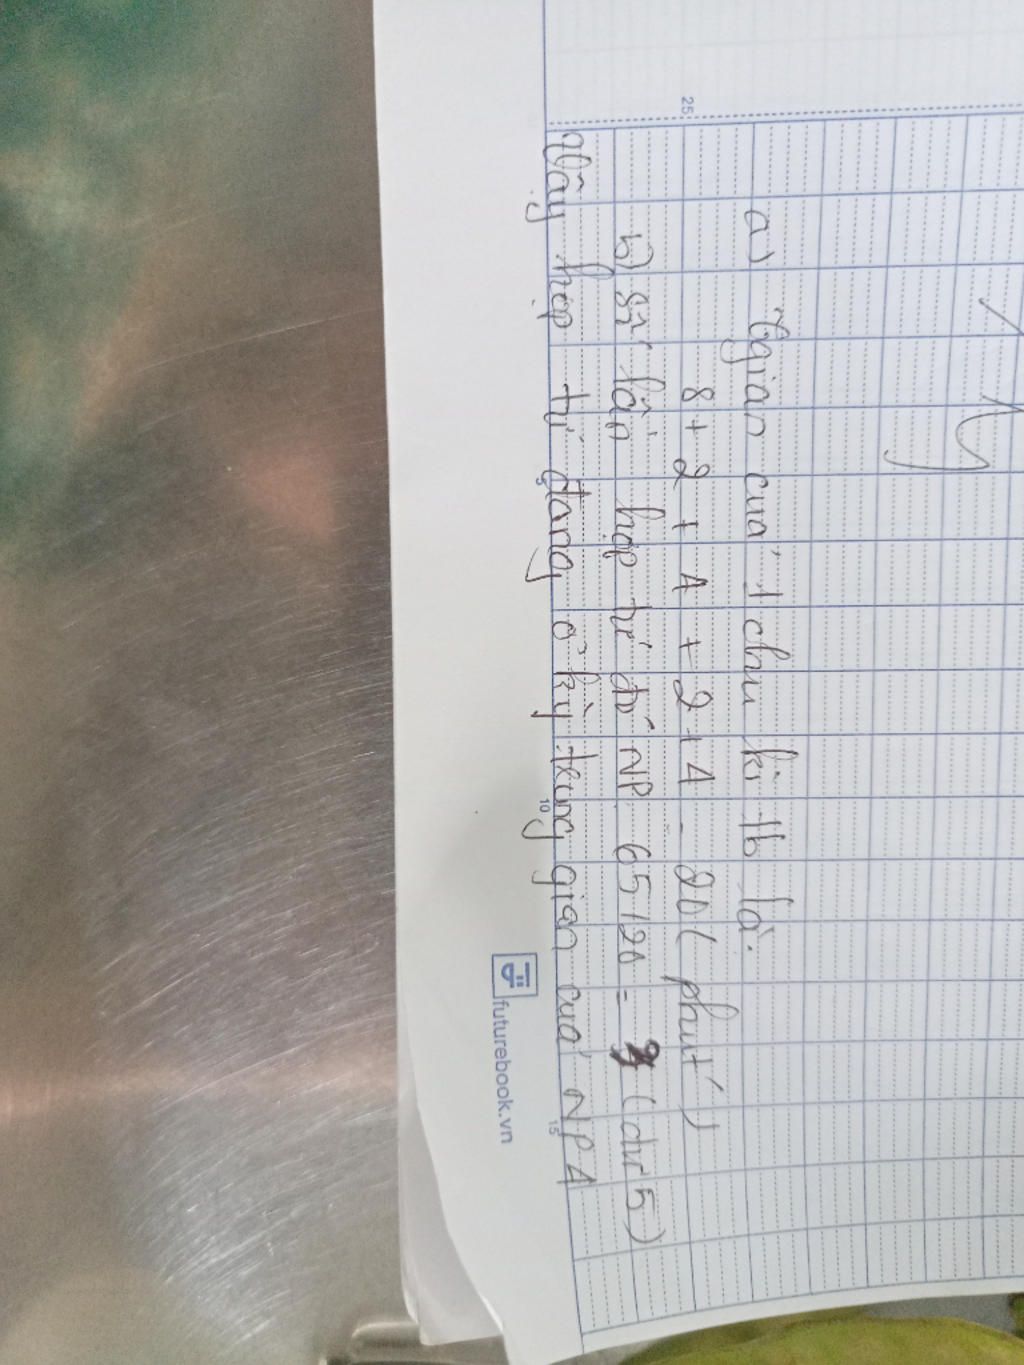 25
a) tgian của 1 chu kì tb là:
8 + 2 + 4 + 2 + 4 = 20 ( phút )
b) Số lần hợp tử đó NP 65:20 = 3 (dư 5)
Vậy hợp tử đang ở kỳ trung gian của NP 4
5
10
15
futurebook.vn